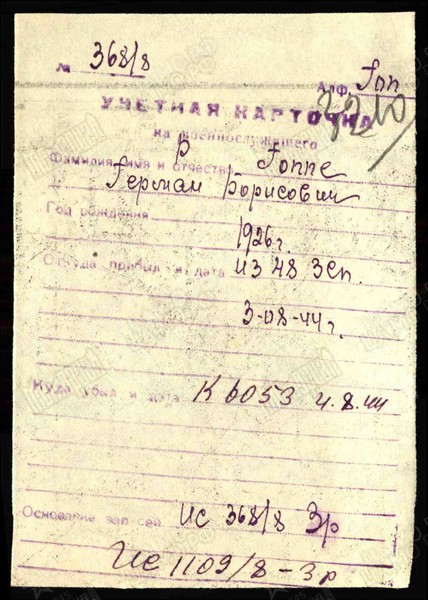 № 368/8
Алф. Гоп
УЧЕТНАЯ КАРТОЧКА
на военнослужащего
Р
Фамилия, имя и отчество Гоппе
Герман Борисович
Год рождения
1926 г
Откуда прибыл и дата из 48 Зсп.
3-08-44 г.
Куда убыл и дата К 6053 4.8.44
Основание зап сей Ис 368/8 Зр
Ис 1109/8 – Зр